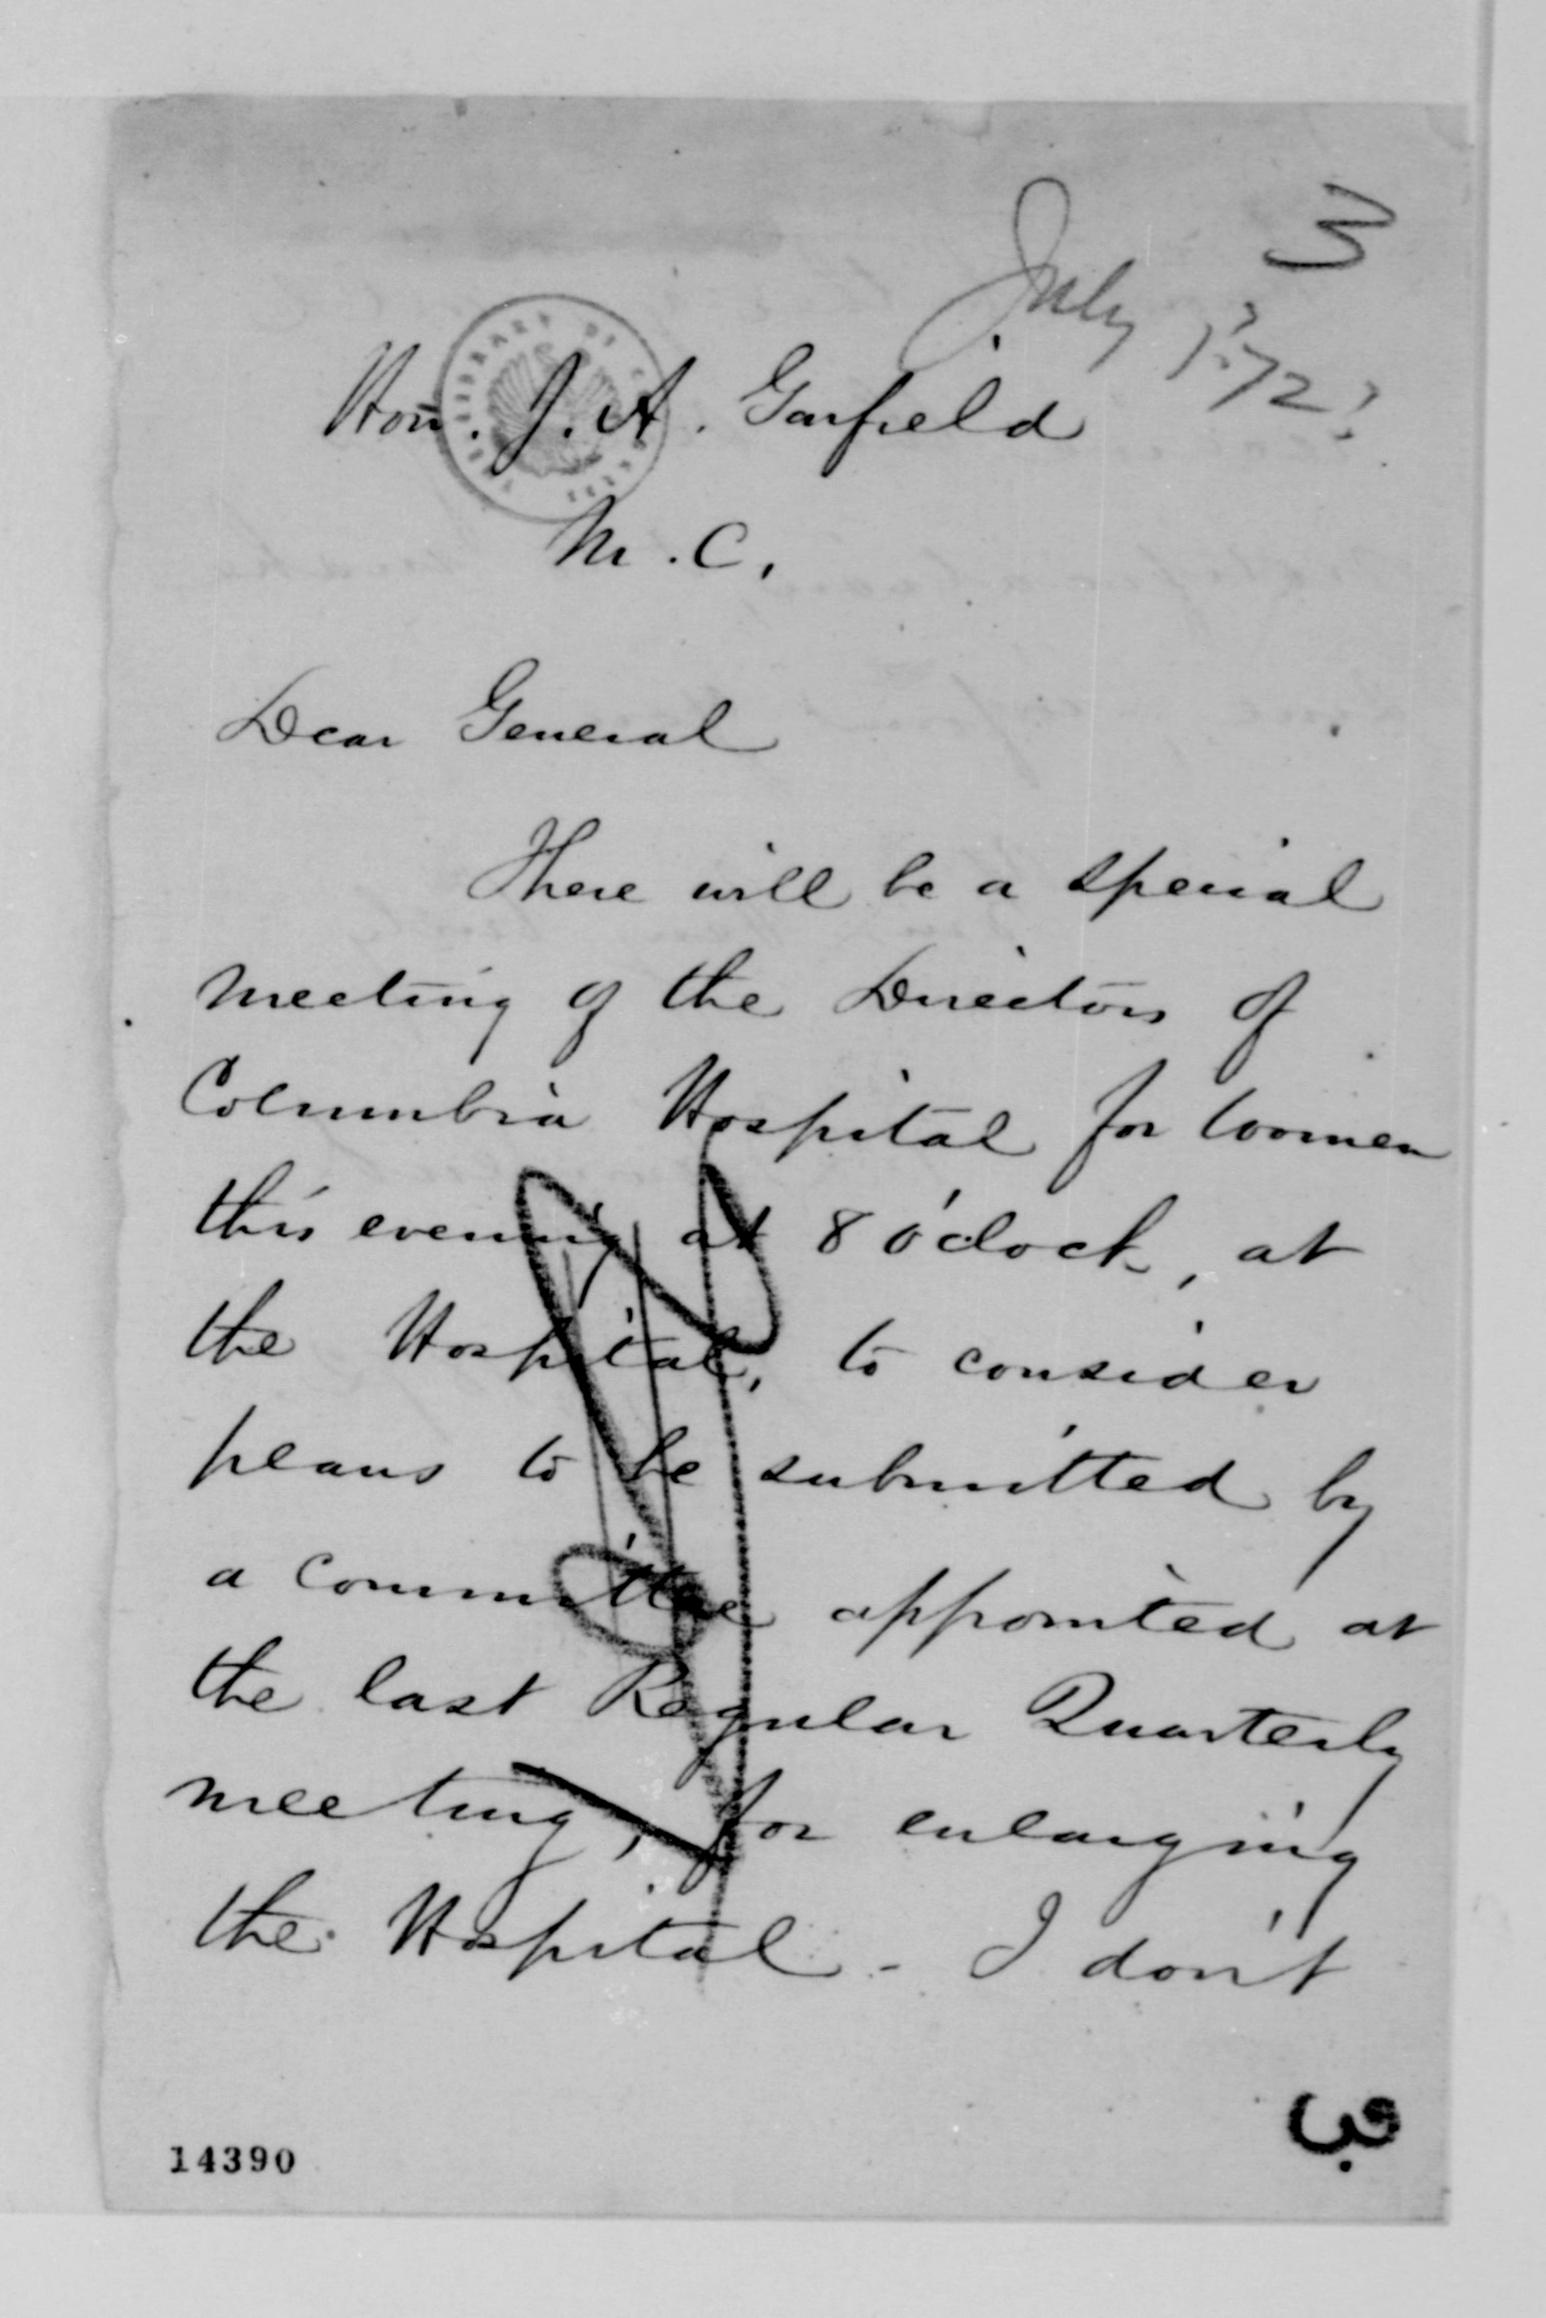 3
July 1872?
Hon. J. A. Garfield
M. C.
Dear General
There will be a special
meeting of the Directors of
Columbia Hospital for Women
this evening at 8 o'clock, at
the Hospital, to consider
plans to be submitted by
a committee appointed at
the last Regular Quarterly
meeting, for enlarging
the Hospital - I don't
14390